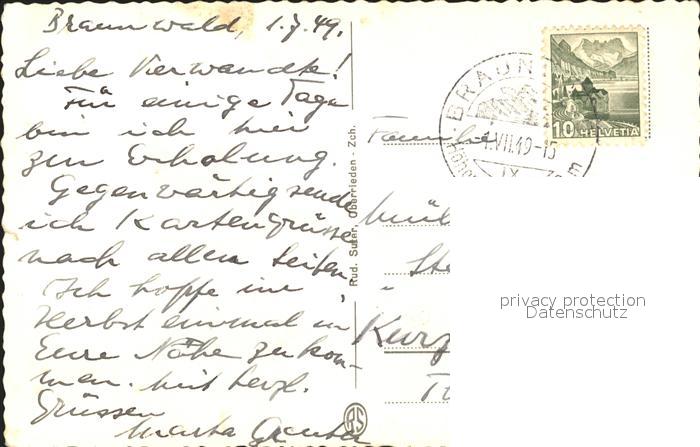 Braunwald, 1.7.49.
Liebe Verwandte!
Für einige Tage
bin ich hier
zur Erholung.
Gegenwärtig sende
ich Kartengrüsse
nach allen Seiten.
Ich hoffe im
Herbst einmal in
Eure Nähe zu kom-
men. Mit herzl.
Grüssen
Marta
Rud. Suter, Oberrieden - Zch.
RS
BRAUN
1.VII.49-15
10 HELVETIA
Familie
Mül
Ste
Kurz
privacy protection
Datenschutz